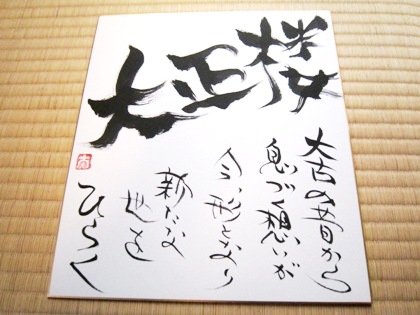 大正桜
大古の昔から
息づく想いが
今、形となり
新たな
地を
ひらく